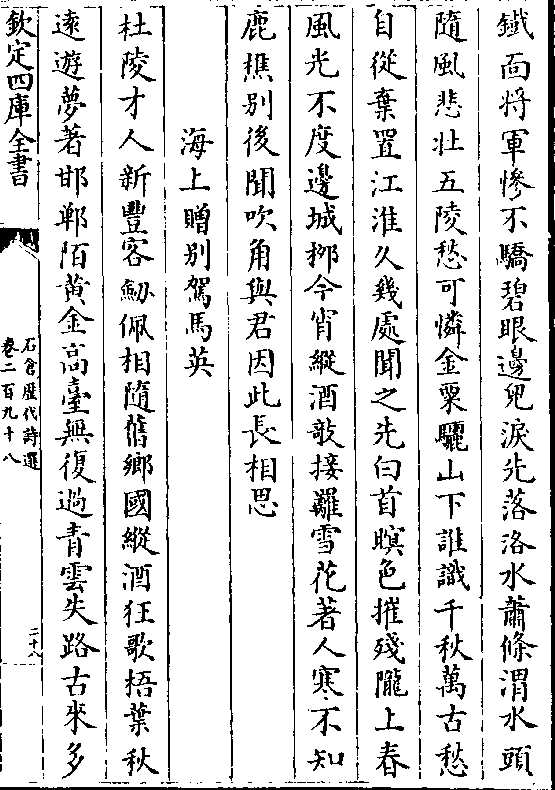 鐵面將軍慘不驕碧眼邊兒淚先落洛水蕭條渭水頭
隨風悲壯五陵愁可憐金粟驪山下誰識千秋萬古愁
自從棄置江淮久幾處聞之先白首暝色摧殘隴上春
風光不度邊城栁今宵縱酒敧接䍦雪花著人寒不知
鹿樵别後聞吹角與君因此長相思
海上贈别駕馬英
杜陵才人新豐客劒佩相隨舊鄉國縱酒狂歌梧葉秋
遠遊夢著邯鄲陌黃金高臺無復過青雲失路古來多
欽定四庫全書
石倉歴代詩選
卷二百九十八
二十八